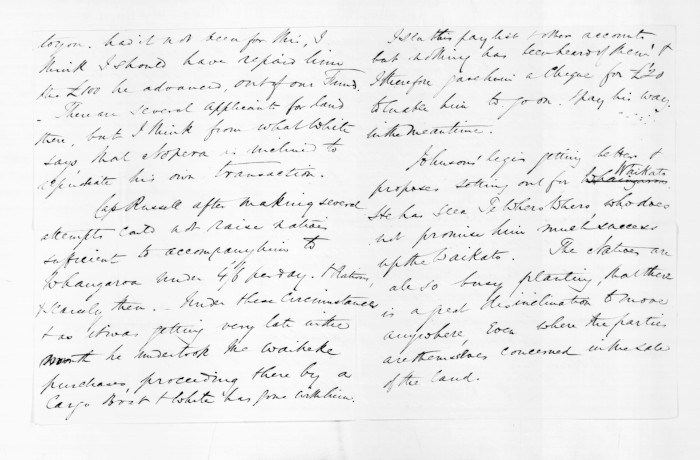 had it not been for this, I
think I should have repaid him
the £100 he advanced, out of our Fund.
- There are several applicants for land
then, but I think from what White
says that Nopera is inclined to
repudiate his own transaction.
Cap Russell after making several
attempts could not raise natives
sufficient to accompany him to
Whangaroa under 4/6 per day. & Rations,
& scarcely then. - Under these Circumstances
& as it was getting very late in the
month he undertook the Waiheke
purchases, proceeding there by a
Cargo Boat & White has gone with him.
I sent his pay list & other accounts
but nothing has been heard of them &
I therefore gave him a Cheque for £20
to enable him to go on. & pay his way
in the meantime.
Johnson's leg is getting better &
Waikato
proposes setting out for Whangaroa
He has seen Te Whero Whero, who does
not promise him much success
up the Waikato. The Natives are
all so busy planting, that there
is a great disinclination to move
anywhere, Even where the parties
are themselves concerned in the sale
of the land.